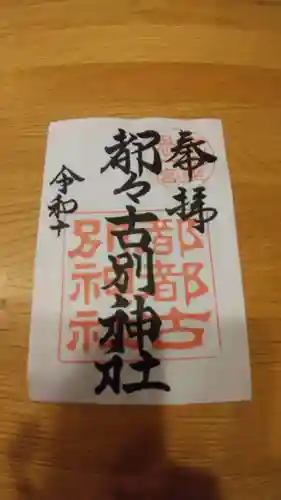 奉拝
都々古別神社
令和
都都古
別神社